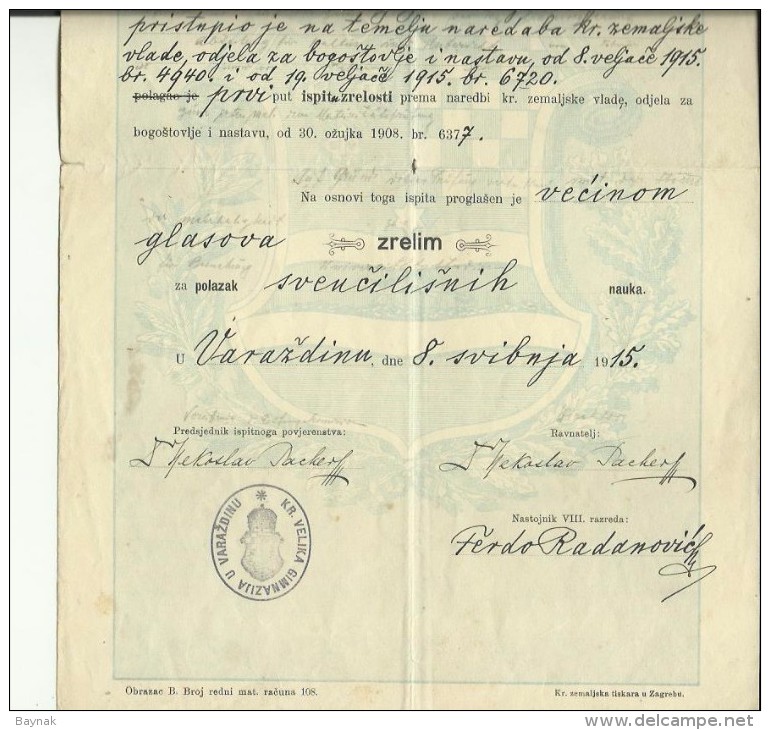 pristupio je na temelju naredaba kr. zemaljske
vlade, odjela za bogoštovlje i nastavu, od 8. veljače 1915.
br. 4940. i od 19. veljače 1915. br. 6720.
polagao je prvi put ispitu zrelosti prema naredbi kr. zemaljske vlade, odjela za
bogoštovlje i nastavu, od 30. ožujka 1908. br. 6377.
Na osnovi toga ispita proglašen je većinom
glasova zrelim
za polazak sveučilišnih nauka.
U Varaždinu, dne 8. svibnja 1915.
Predsjednik ispitnoga povjerenstva:
Ravnatelj:
Vjekoslav Pacher
Vjekoslav Pacher
KR. VELIKA GIMNAZIJA U VARAŽDINU
Nastojnik VIII. razreda:
Ferdo Radanović
Obrazac B. Broj redni mat. računa 108.
Kr. zemaljska tiskara u Zagrebu.
Baynak
delcampe.net